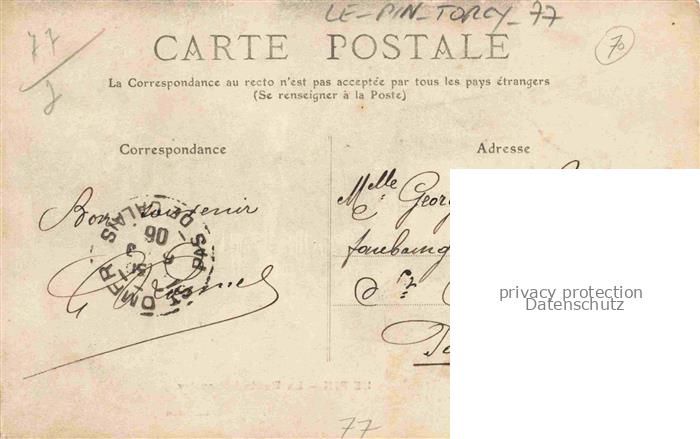 LE-PIN-TORCY-77
77
CARTE POSTALE
70
La Correspondance au recto n'est pas acceptée par tous les pays étrangers
(Se renseigner à la Poste)
Correspondance
Adresse
Melle Georg
Bon souvenir
PAS-DE-CALAIS
06
OMER
faubourg
de St
privacy protection
Datenschutz
LE PIN - La
77